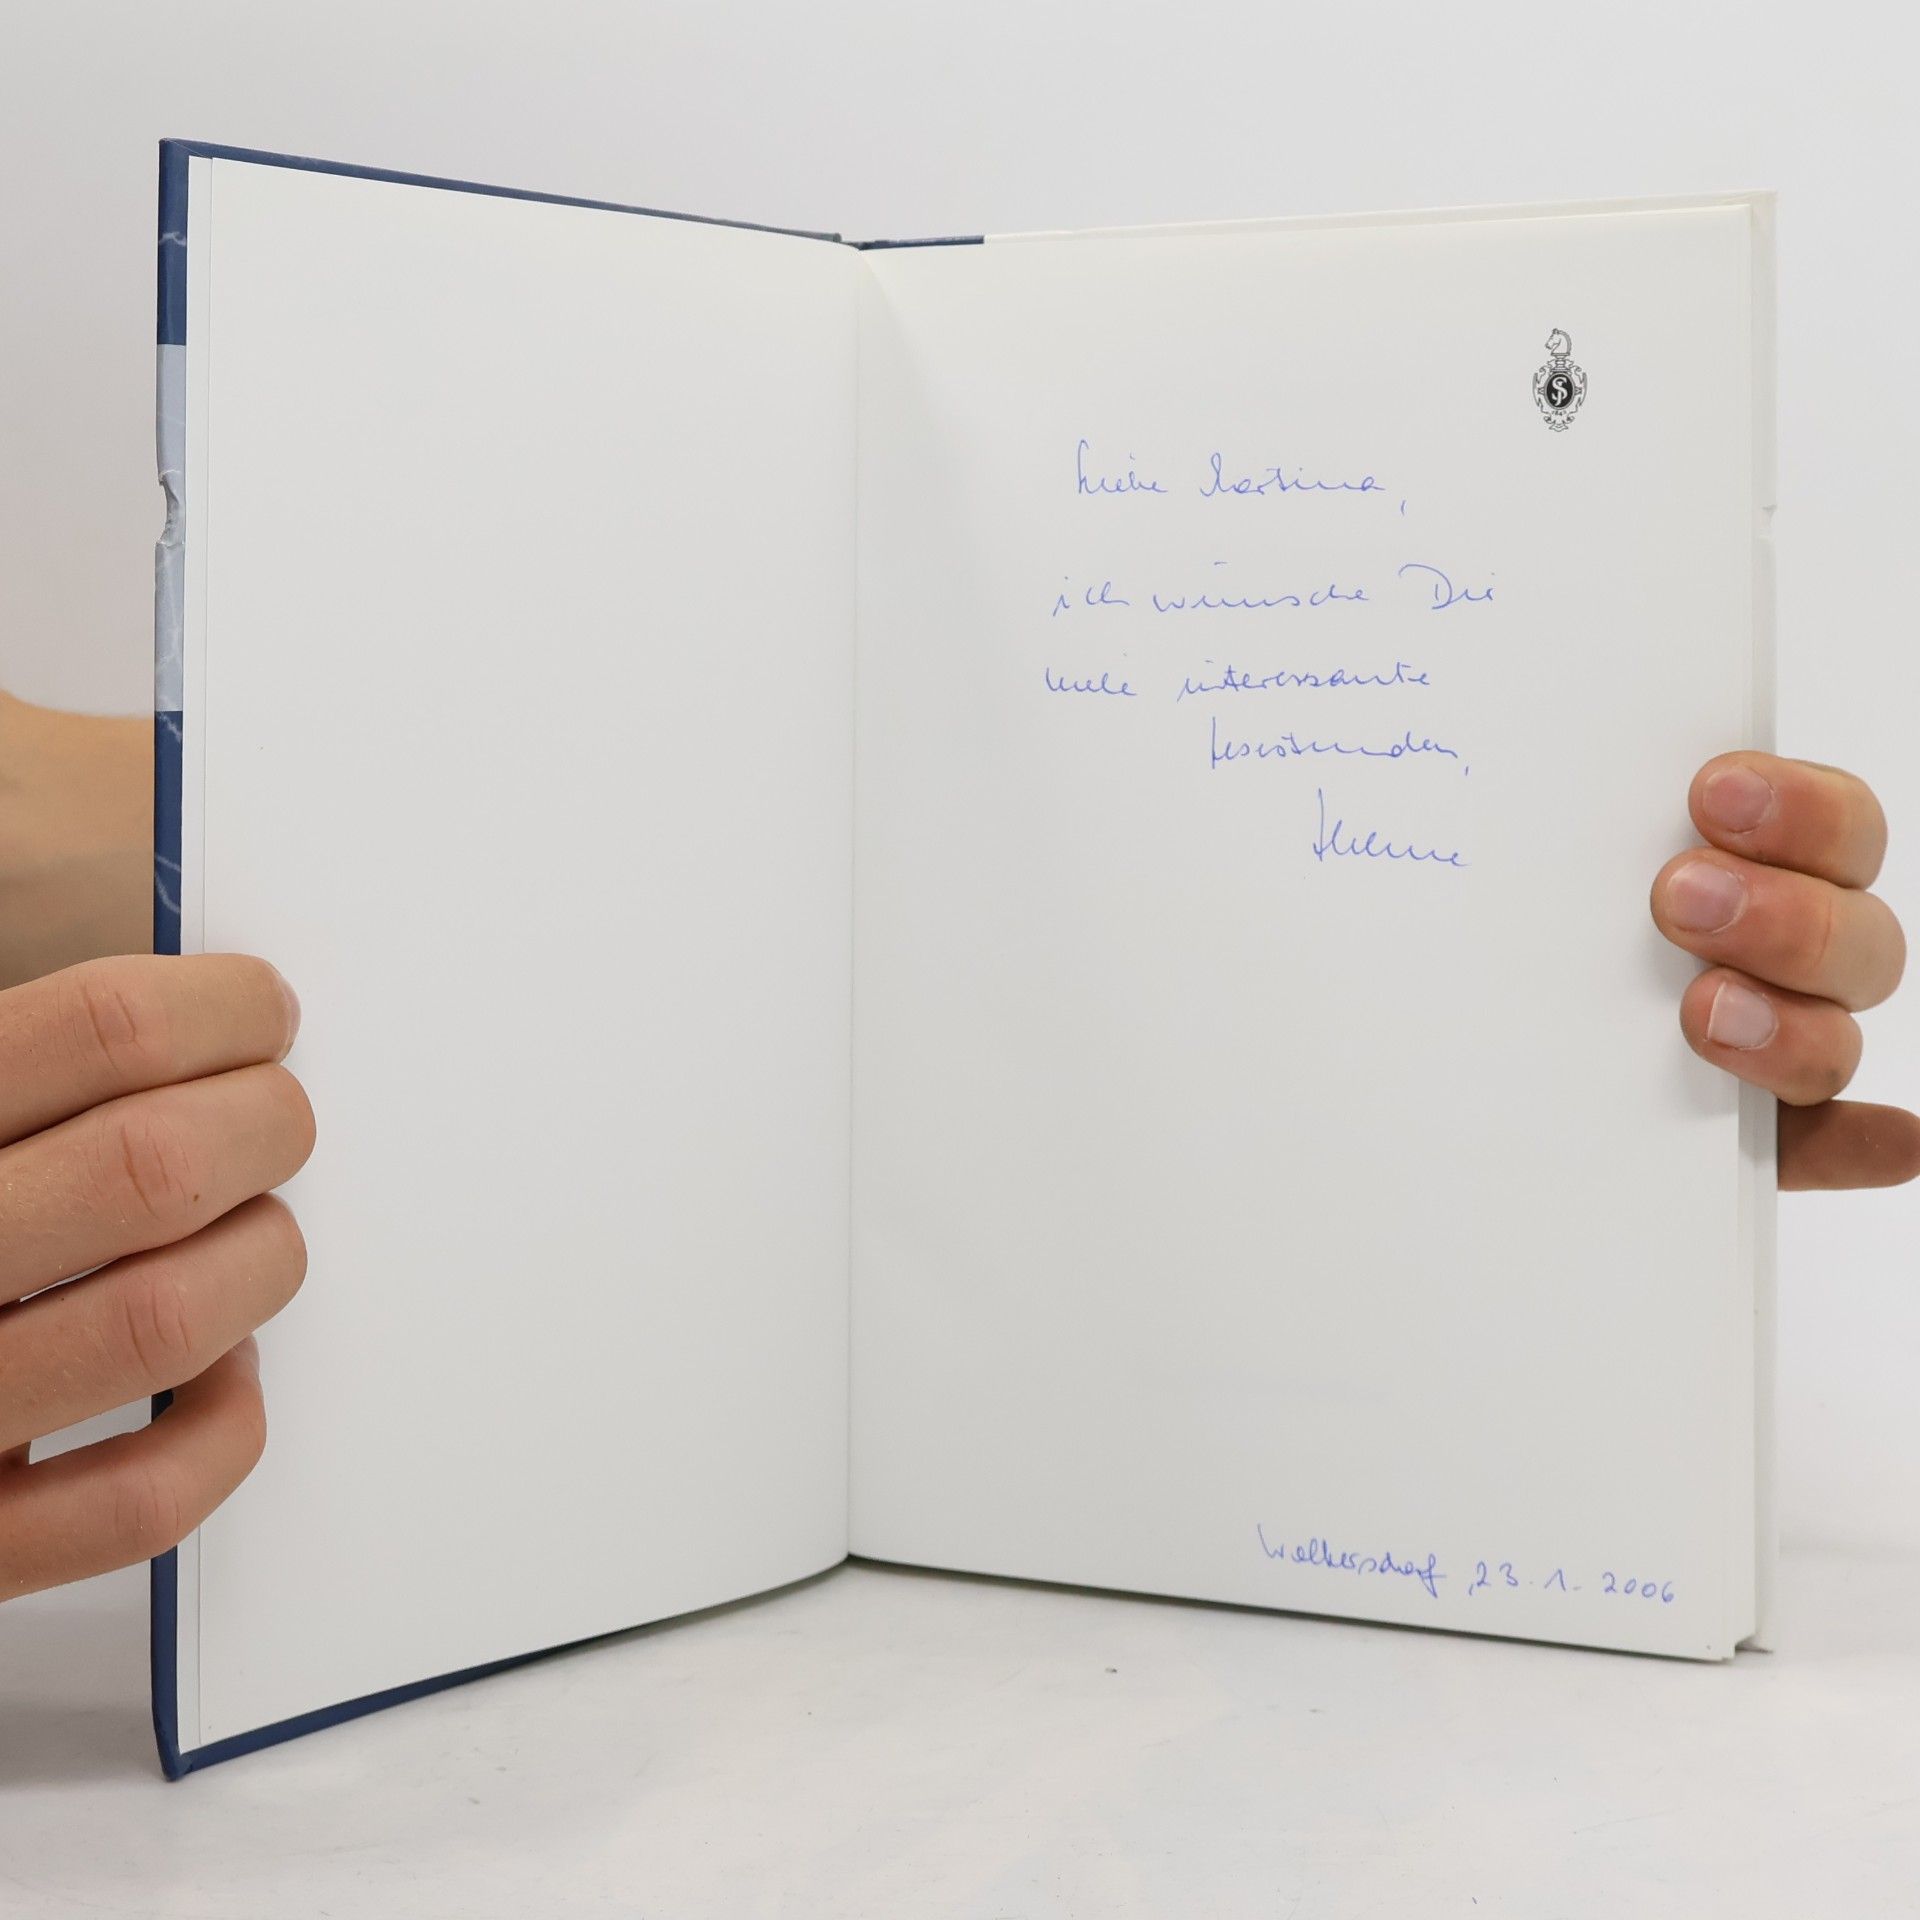 Liebe Martina,
ich wünsche Dir
viele interessante
Lesestunden,
Wolkersdorf, 23.1.2006